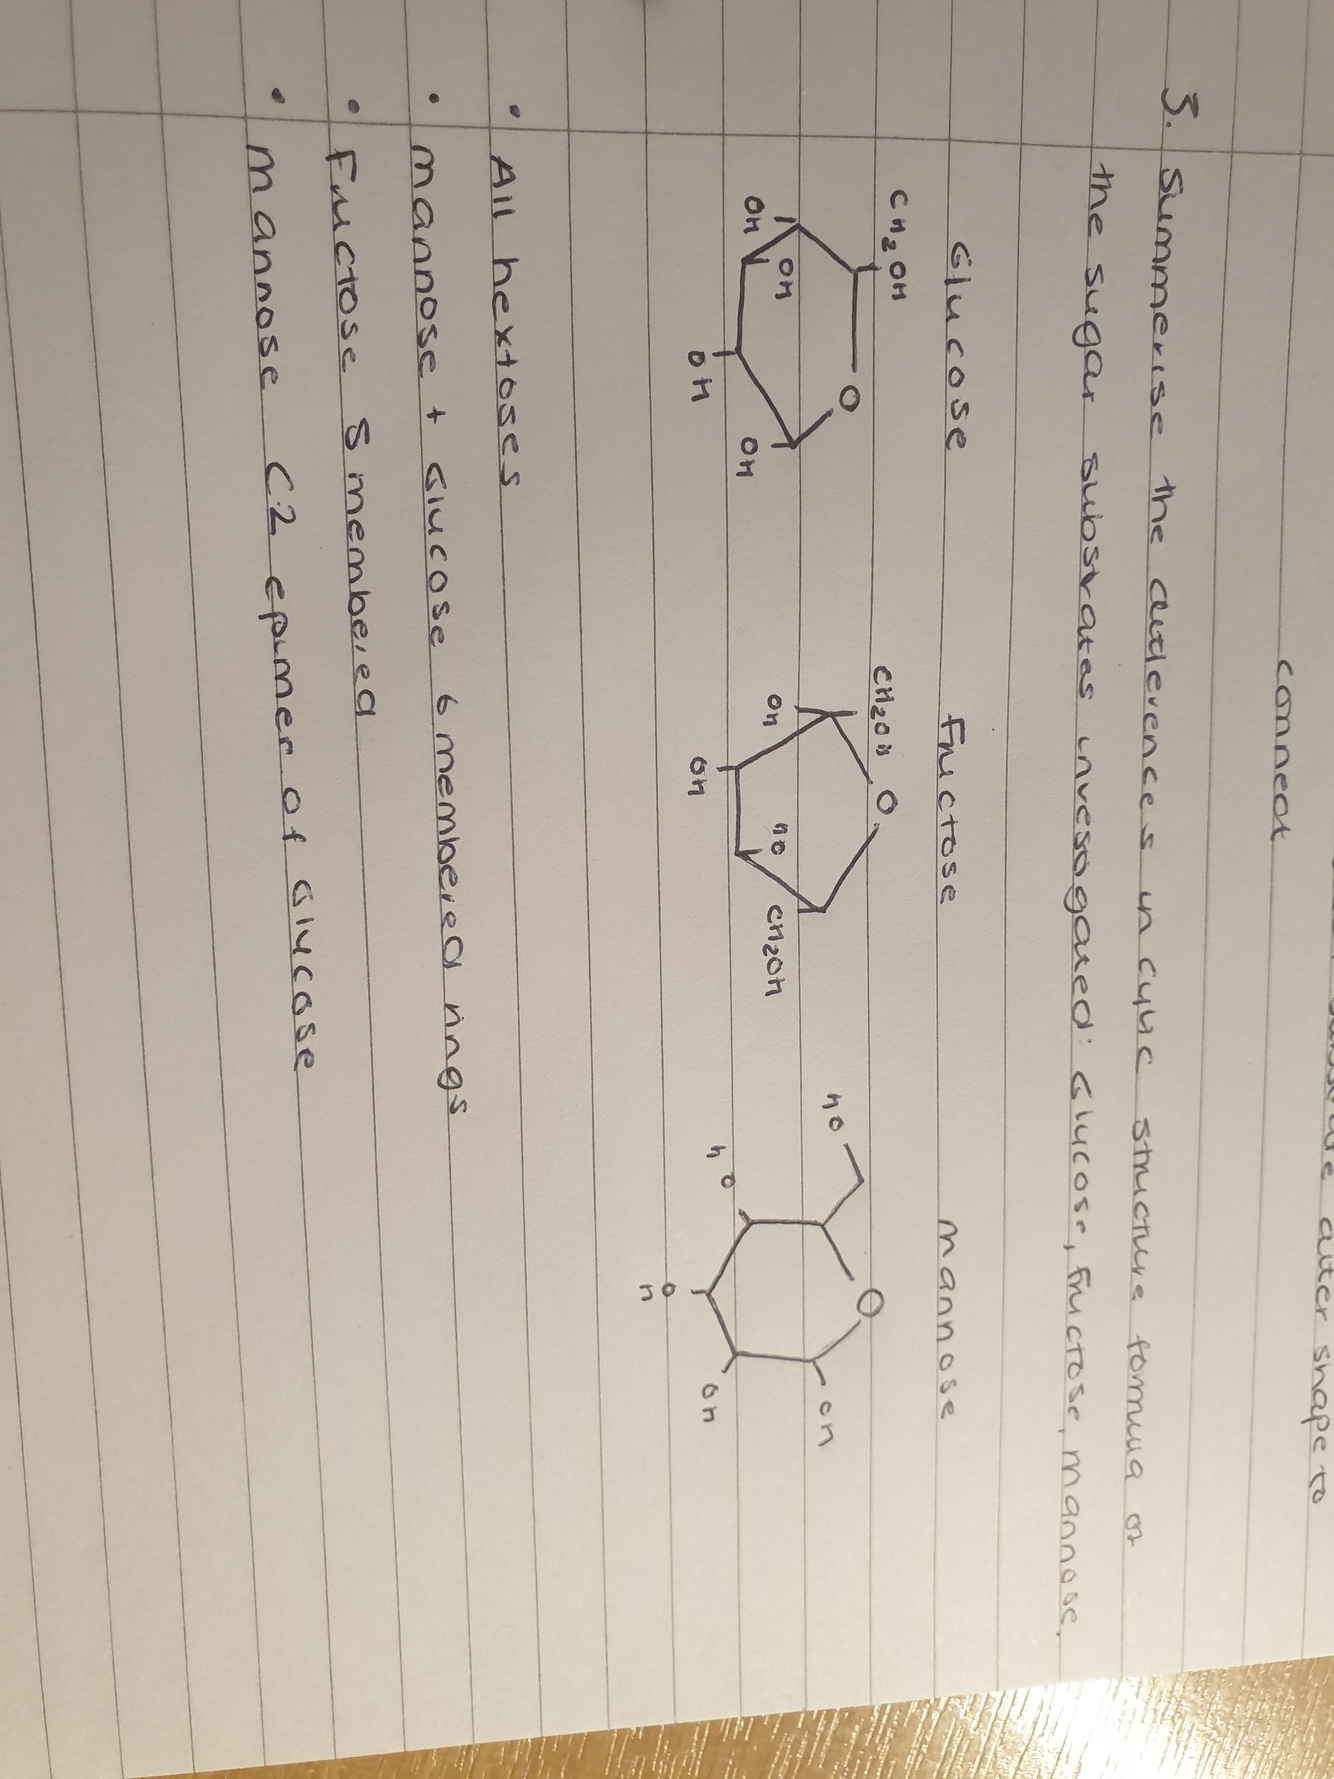 connect
3. Summerise the differences in cyclic structure formula of
the sugar substrates invesogated: Glucose, fructose, mannose.
Glucose fructose mannose
CH2OH
O
OH
OH
OH
OH
CH2OH
O
OH
HO
OH
CH2OH
HO
O
OH
HO
HO
OH
• All hextoses
• mannose + Glucose 6 membered rings
• Fructose 5 membered
• mannose C2 epimer of Glucose